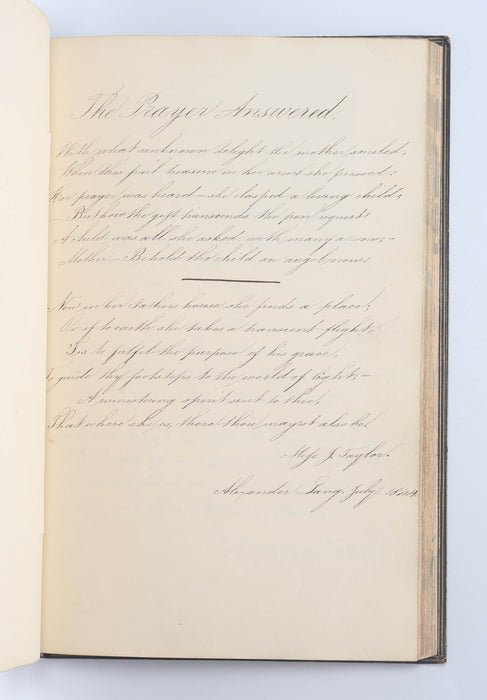 The Prayer Answered.
With what unknown delight the mother smiled,
When this frail treasure in her arms she pressed;
Her prayer was heard—she clasped a living child;
— But how the gift transcends the poor request!
A child was all she asked, with many a vow;—
Mother—Behold the child an angel now
Now in her Fathers house she finds a place;
Or if to earth she takes a transient flight:
Tis to fulfil the purpose of his grace,
To guide thy footsteps to the world of light;—
A ministering spirit sent to thee,
That where she is, there thou mayst also be.
Miss J. Taylor.
Alexander Lang. July.